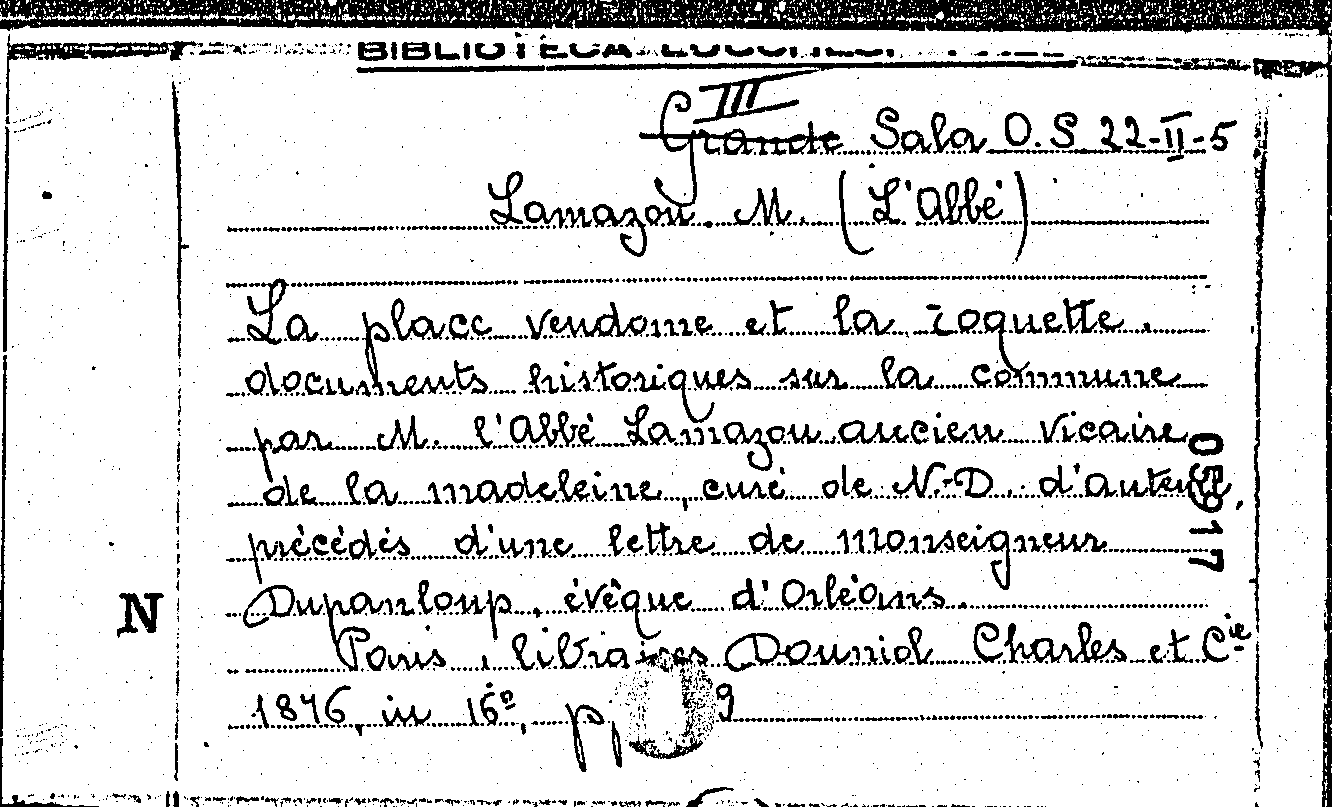 BIBLIOTECA LUCCHESI
III
Grande Sala O.S 22-II-5
Lamazou. M. (L'Abbé)
La place vendome et la roquette.
documents historiques sur la commune
par M. l'Abbé Lamazou ancien vicaire
de la madeleine, curé de N.-D. d'auteuil,
précédés d'une lettre de monseigneur
Dupanloup, évêque d'Orléans.
Paris, libraires Douniol Charles et Cie
1876, in 16º, pp 9
05917
N